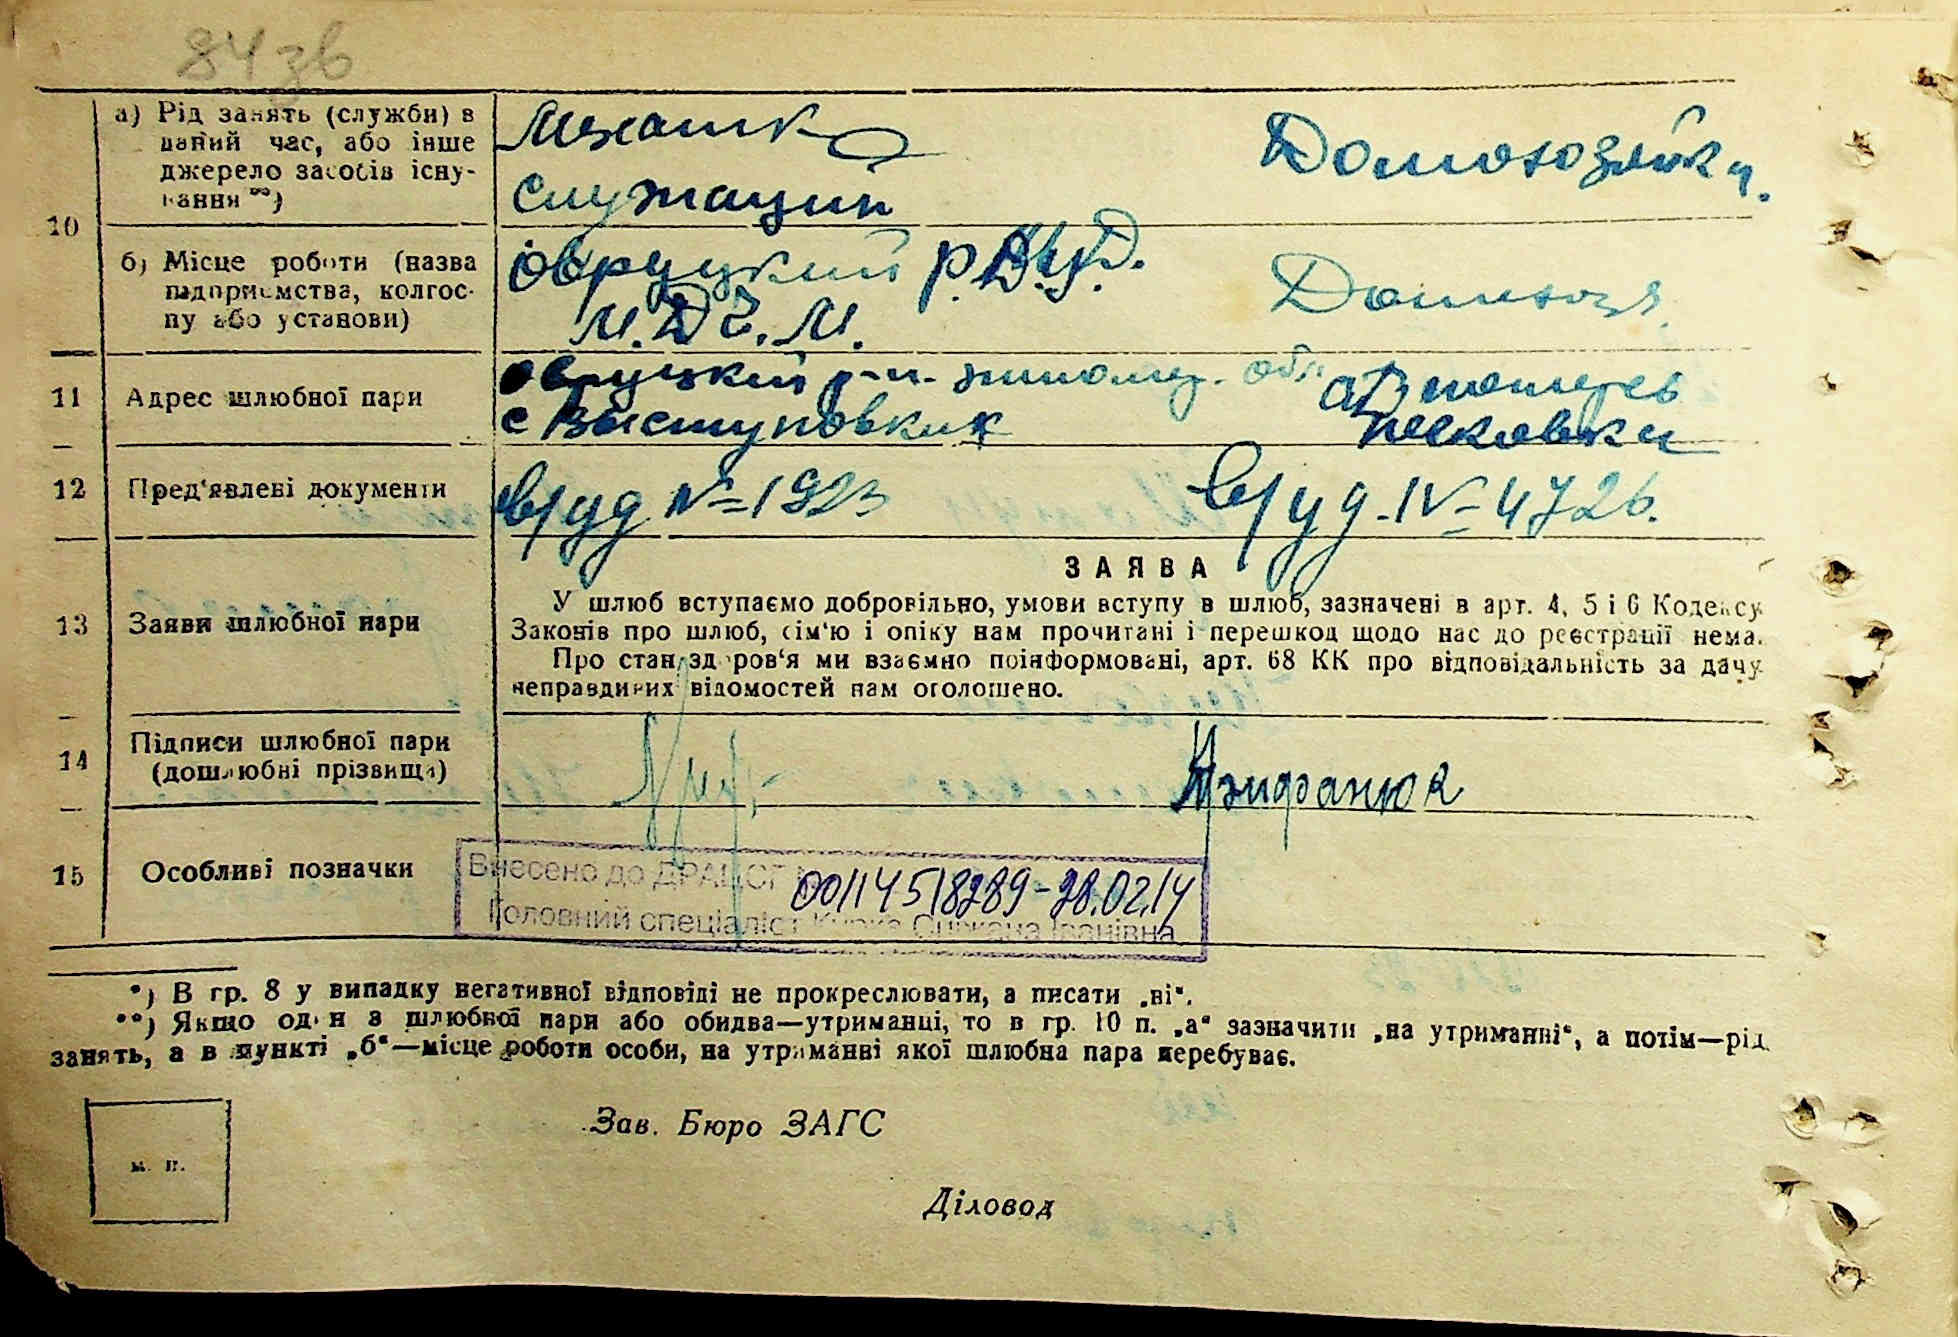 84 зв
10
а) Рід занять (служби) в
даний час, або інше
джерело засобів існу-
вання **)
Механик
служащий
Домохозяйка.
б) Місце роботи (назва
підприємства, колгос-
пу або установи)
Овруцкий р.
Домохоз.
11 Адрес шлюбної пари
Овруцкий р-н. Житомир. обл
с Выступовичи
12 Пред'явлені документи
в/уд №=1923
в/уд. №=4726.
13 Заяви шлюбної пари
ЗАЯВА
У шлюб вступаємо добровільно, умови вступу в шлюб, зазначені в арт. 4, 5 і 6 Кодексу
Законів про шлюб, сім'ю і опіку нам прочитані і перешкод щодо нас до реєстрації нема.
Про стан здоров'я ми взаємно поінформовані, арт. 68 КК про відповідальність за дачу
неправдивих відомостей нам оголошено.
14 Підписи шлюбної пари
(дошлюбні прізвища)
15 Особливі позначки
Внесено до ДРАЦСГ 00114518289-28.02.14
Головний спеціаліст Іванівна
*) В гр. 8 у випадку негативної відповіді не прокреслювати, а писати „ні“.
**) Якщо один з шлюбної пари або обидва—утриманці, то в гр. 10 п. „а“ зазначити „на утриманні“, а потім—рід
занять, а в пункті „б“—місце роботи особи, на утриманні якої шлюбна пара перебуває.
Зав. Бюро ЗАГС
м. п.
Діловод